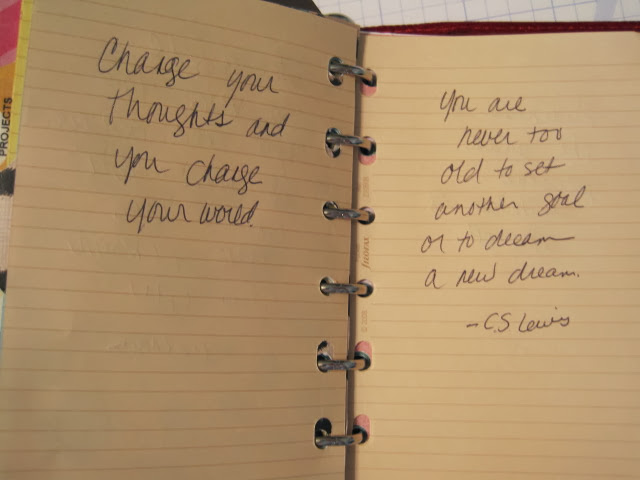 PROJECTS
Change your
thoughts and
you change
your world.
you are
never too
old to set
another goal
or to dream
a new dream.
- C.S Lewis